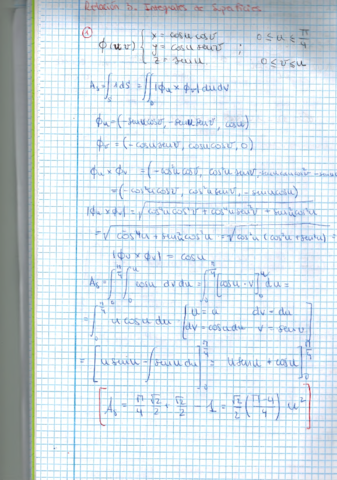 Relación 3. Integrales de Superficies
① φ(u,v) { x = cosu cosv 0 ≤ u ≤ π/4
y = cosu senv ;
z = senu 0 ≤ v ≤ u
A_s = ∫ 1ds = ∬ |φu × φv| dudv
φu = (-senu cosv, -senu senv, cosu)
φv = (-cosu senv, cosu cosv, 0)
φu × φv = (-cos²u cosv, cos²u senv,
= (-cos²u cosv, cos²u senv, -senu cosu)
|φu × φv| = √(cos⁴u cos²v + cos⁴u sen²v + sen²u cos²u)
= √(cos⁴u + sen²u cos²u) = √(cos²u (cos²u + sen²u)) =
|φu × φv| = cosu
A_s = ∫₀^{π/4} ∫₀^u cosu dvdu = ∫₀^{π/4} [cosu · v]₀^u du =
= ∫₀^{π/4} u cosu du = [ u = u du = du
dv = cosudu v = senu ]
= [u senu - ∫ senu du]₀^{π/4} = u senu + cosu ]₀^{π/4}
[ A_s = π/4 √2/2 + √2/2 - 1 = √2/2 (